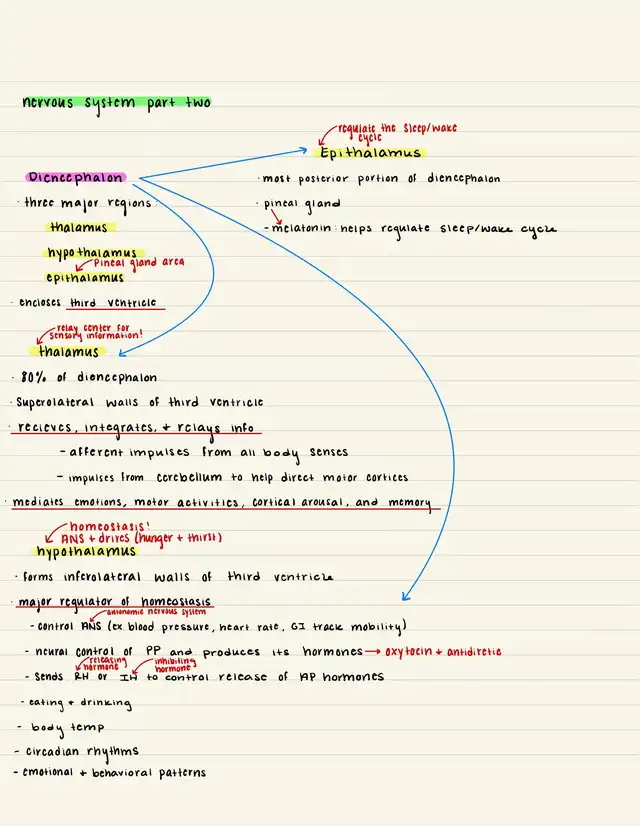 nervous system part two
regulate the sleep/wake
cycle
Epithalamus
· most posterior portion of diencephalon
· pineal gland
- melatonin: helps regulate sleep/wake cycle
Diencephalon
· three major regions:
thalamus
hypothalamus
pineal gland area
epithalamus
· encloses third ventricle
relay center for
sensory information!
thalamus
· 80% of diencephalon
· superolateral walls of third ventricle
· recieves, integrates, + relays info
- afferent impulses from all body senses
- impulses from cerebellum to help direct motor cortices
· mediates emotions, motor activities, cortical arousal, and memory
homeostasis!
ANS + drives (hunger + thirst)
hypothalamus
· forms inferolateral walls of third ventricle
· major regulator of homeostasis
autonomic nervous system
- control ANS (ex. blood pressure, heart rate, GI track mobility)
- neural control of PP and produces its hormones → oxytocin + antidiretic
releasing hormone
inhibiting hormone
- sends RH or IH to control release of AP hormones
- eating + drinking
- body temp
- circadian rhythms
- emotional + behavioral patterns